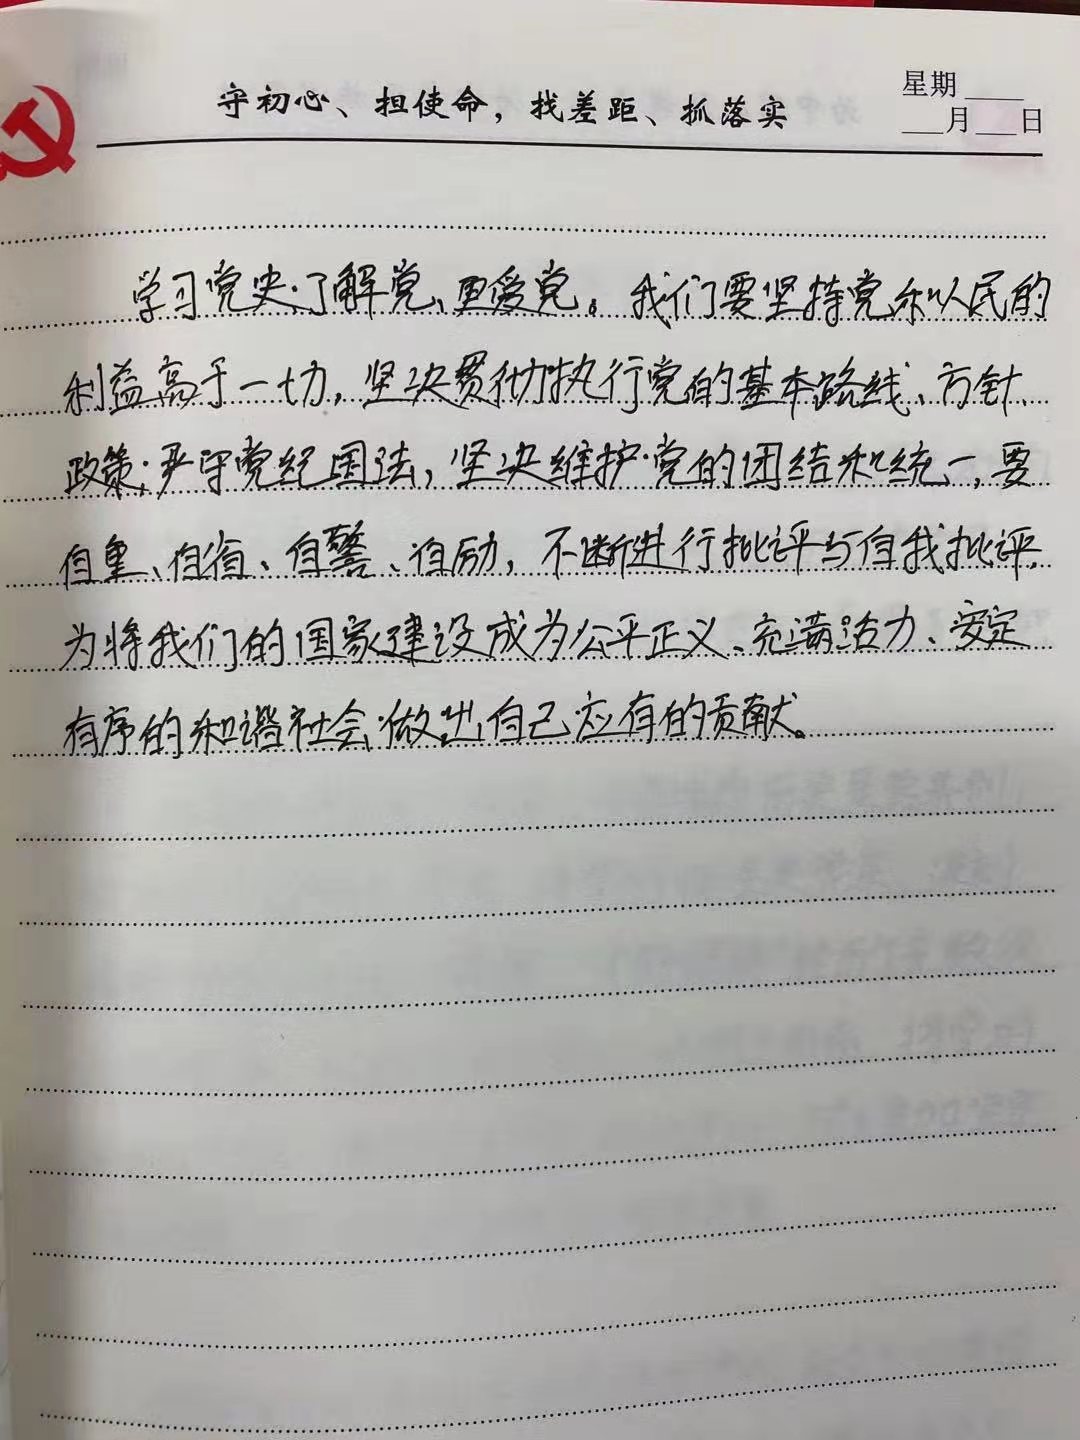 守初心、担使命，找差距、抓落实
星期
月 日
学习党史、了解党、更爱党。我们要坚持党和人民的
利益高于一切，坚决贯彻执行党的基本路线、方针、
政策，严守党纪国法，坚决维护党的团结和统一，要
自重、自省、自警、自励，不断进行批评与自我批评，
为将我们的国家建设成为公平正义、充满活力、安定
有序的和谐社会做出自己应有的贡献。